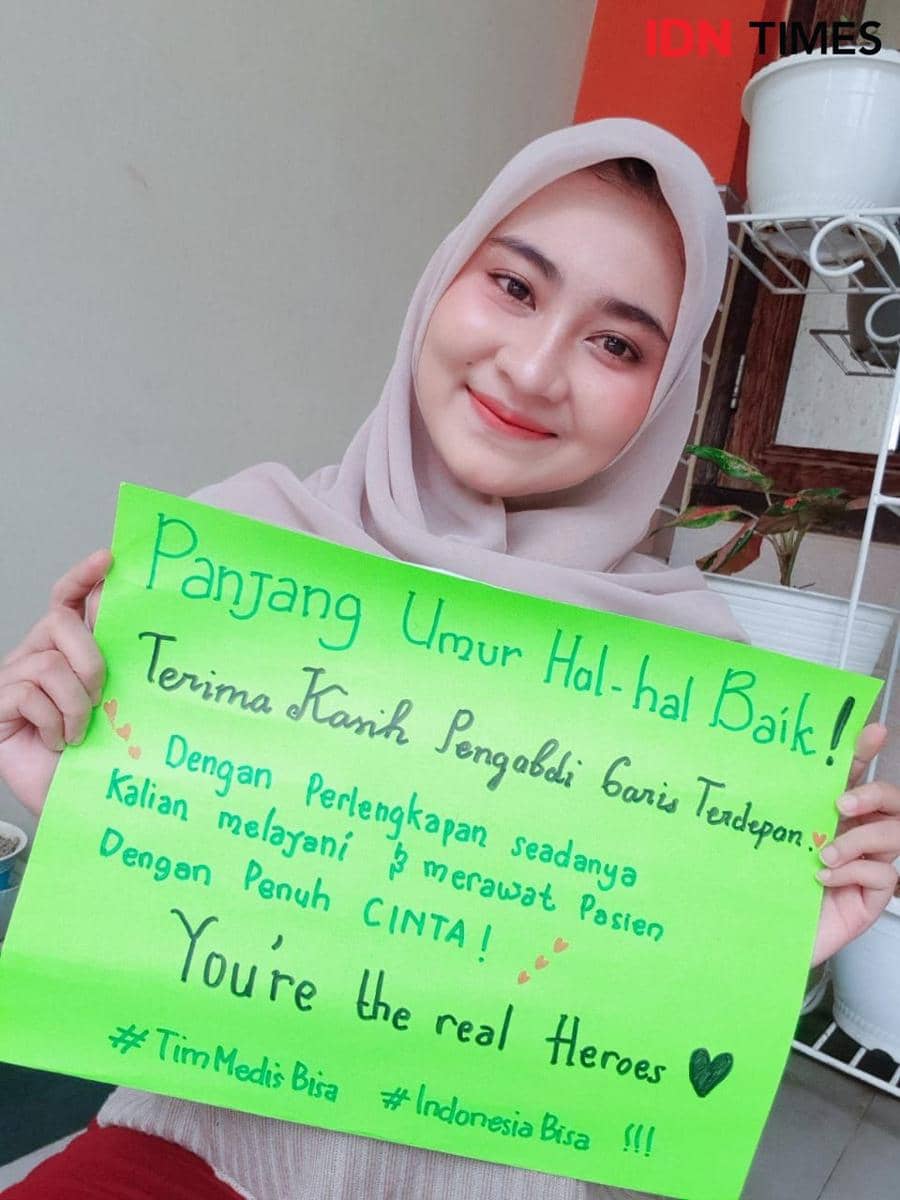 IDN TIMES
Panjang Umur Hal-hal Baik!
Terima Kasih Pengabdi Garis Terdepan.
Dengan Perlengkapan seadanya
Kalian melayani & merawat Pasien
Dengan Penuh CINTA!
You're the real Heroes
#TimMedisBisa #IndonesiaBisa !!!